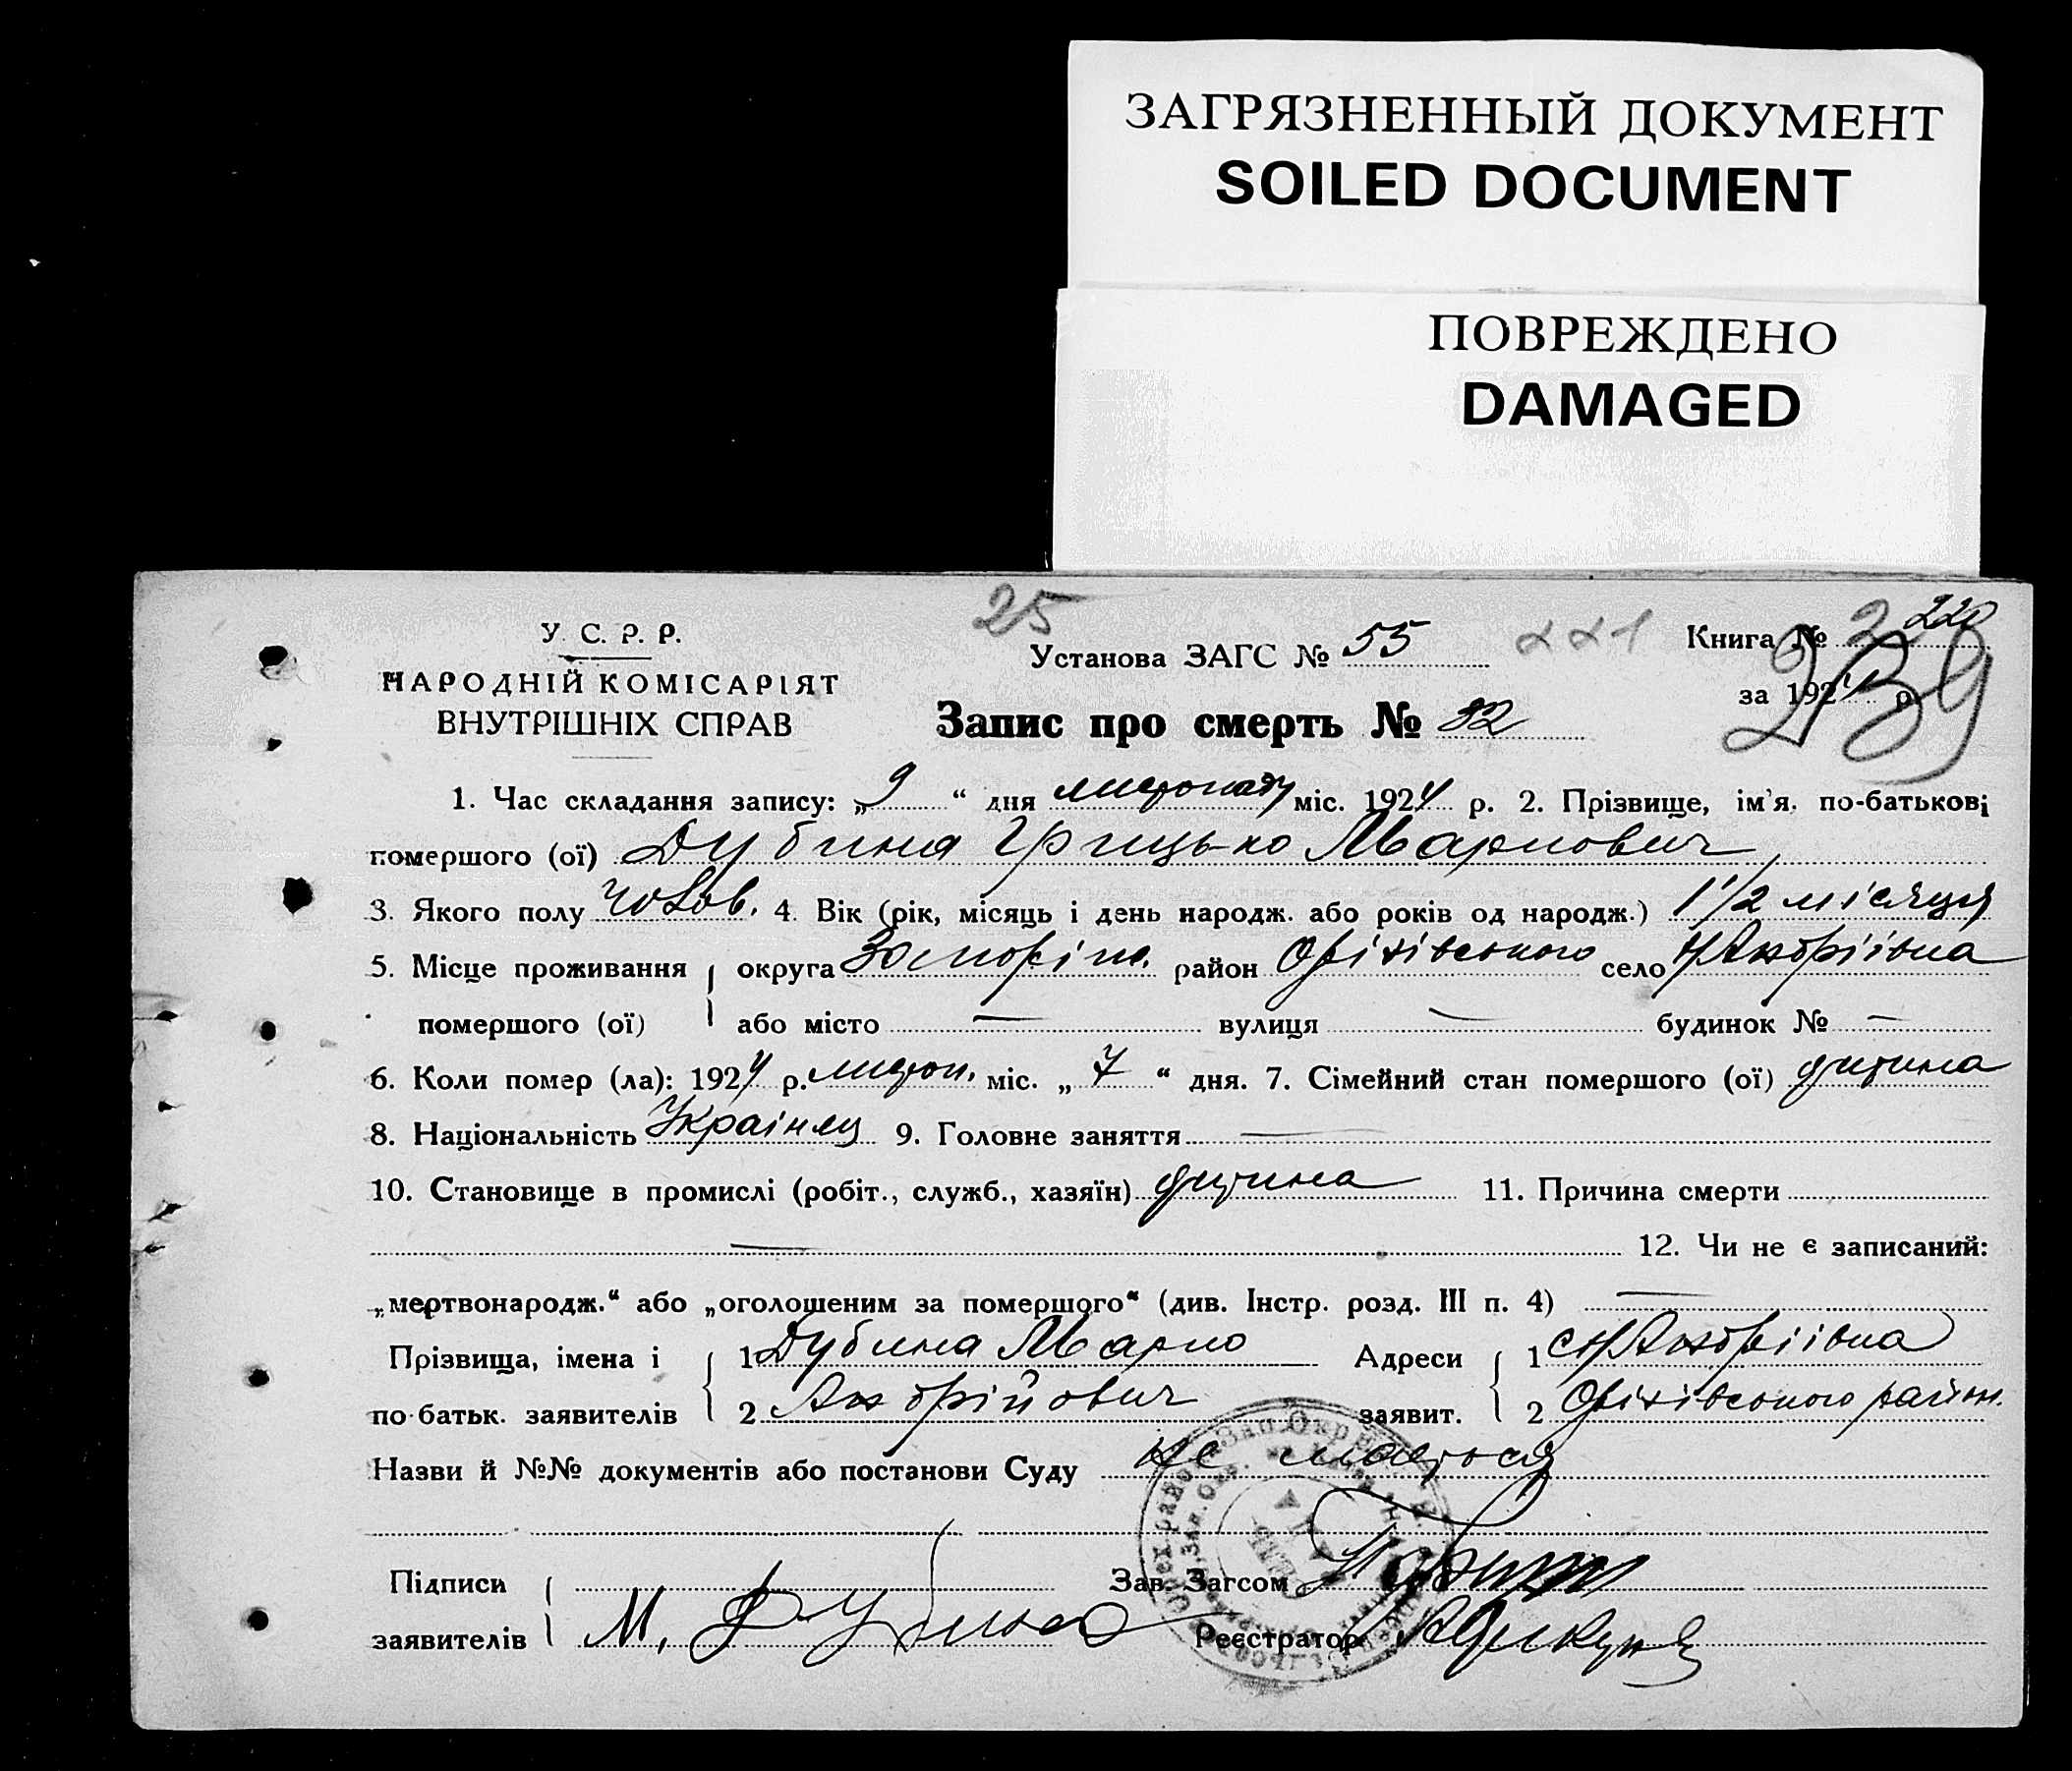 ЗАГРЯЗНЕННЫЙ ДОКУМЕНТ
SOILED DOCUMENT
ПОВРЕЖДЕНО
DAMAGED
25
У. С. Р. Р.
Установа ЗАГС № 55
221
Книга № 2 220
239
НАРОДНІЙ КОМІСАРІЯТ
за 1924 р.
ВНУТРІШНІХ СПРАВ
Запис про смерть № 82
1. Час складання запису: „9“ дня листопаду міс. 1924 р. 2. Прізвище, ім'я, по-батькові
помершого (ої) Дубина Грицько Маркович
3. Якого полу чолов. 4. Вік (рік, місяць і день народж. або років од народж.) 1 1/2 місяця
5. Місце проживання округа Запоріж. район Оріхівського село Н Андріївка
помершого (ої) або місто — вулиця — будинок № —
6. Коли помер (ла): 1924 р. листоп. міс. „7“ дня. 7. Сімейний стан помершого (ої) дитина
8. Національність Українец 9. Головне заняття —
10. Становище в промислі (робіт., служб., хазяїн) дитина 11. Причина смерти
— 12. Чи не є записаний:
„мертвонародж.“ або „оголошеним за помершого“ (див. Інстр. розд. III п. 4) —
Прізвища, імена і 1 Дубина Марко Адреси 1 с Н Андріївка
по-батьк. заявителів 2 Андрійович заявит. 2 Оріхівського район.
Назви й №№ документів або постанови Суду не мається
Підписи Зав. Загсом
заявителів М. Дубина Реєстратор